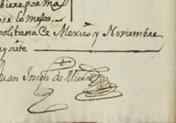 biere por ma
re lo mejor
politana de Mexico y Noviembre
y siete
Juan Joseph de